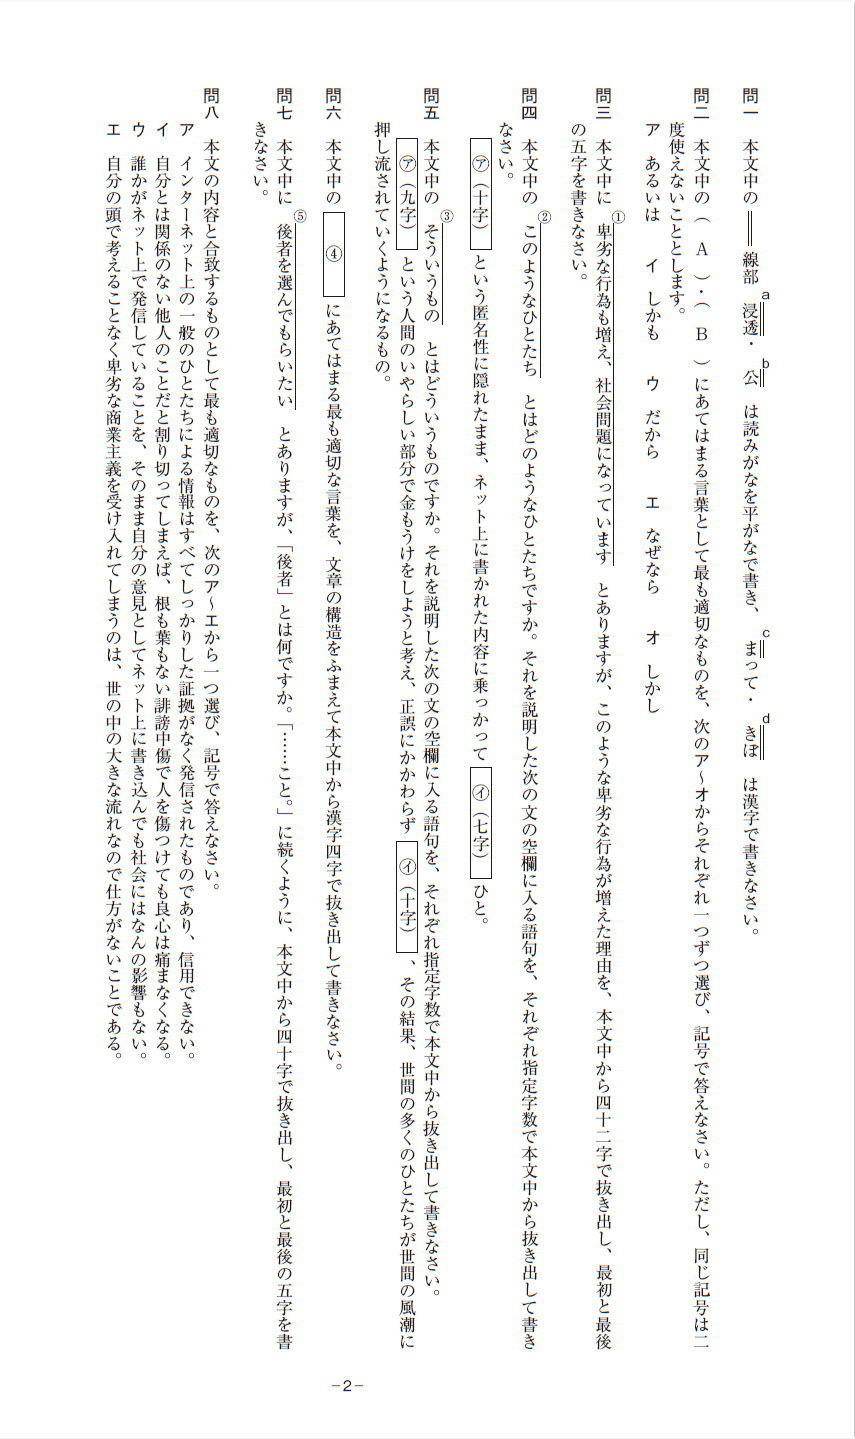 問一　本文中の　線部　a浸透・　b公　は読みがなを平がなで書き、　cまって・　dきぼ　は漢字で書きなさい。
問二　本文中の（　A　）・（　B　）にあてはまる言葉として最も適切なものを、次のア～オからそれぞれ一つずつ選び、記号で答えなさい。ただし、同じ記号は二
度使えないこととします。
ア　あるいは　イ　しかも　ウ　だから　エ　なぜなら　オ　しかし
問三　本文中に　①卑劣な行為も増え、社会問題になっています　とありますが、このような卑劣な行為が増えた理由を、本文中から四十二字で抜き出し、最初と最後
の五字を書きなさい。
問四　本文中の　②このようなひとたち　とはどのようなひとたちですか。それを説明した次の文の空欄に入る語句を、それぞれ指定字数で本文中から抜き出して書き
なさい。
㋐（十字）　という匿名性に隠れたまま、ネット上に書かれた内容に乗っかって　㋑（七字）　ひと。
問五　本文中の　③そういうもの　とはどういうものですか。それを説明した次の文の空欄に入る語句を、それぞれ指定字数で本文中から抜き出して書きなさい。
㋐（九字）　という人間のいやらしい部分で金もうけをしようと考え、正誤にかかわらず　㋑（十字）　、その結果、世間の多くのひとたちが世間の風潮に
押し流されていくようになるもの。
問六　本文中の　④　にあてはまる最も適切な言葉を、文章の構造をふまえて本文中から漢字四字で抜き出して書きなさい。
問七　本文中に　⑤後者を選んでもらいたい　とありますが、「後者」とは何ですか。「……こと。」に続くように、本文中から四十字で抜き出し、最初と最後の五字を書
きなさい。
問八　本文の内容と合致するものとして最も適切なものを、次のア～エから一つ選び、記号で答えなさい。
ア　インターネット上の一般のひとたちによる情報はすべてしっかりした証拠がなく発信されたものであり、信用できない。
イ　自分とは関係のない他人のことだと割り切ってしまえば、根も葉もない誹謗中傷で人を傷つけても良心は痛まなくなる。
ウ　誰かがネット上で発信していることを、そのまま自分の意見としてネット上に書き込んでも社会にはなんの影響もない。
エ　自分の頭で考えることなく卑劣な商業主義を受け入れてしまうのは、世の中の大きな流れなので仕方がないことである。
－2－